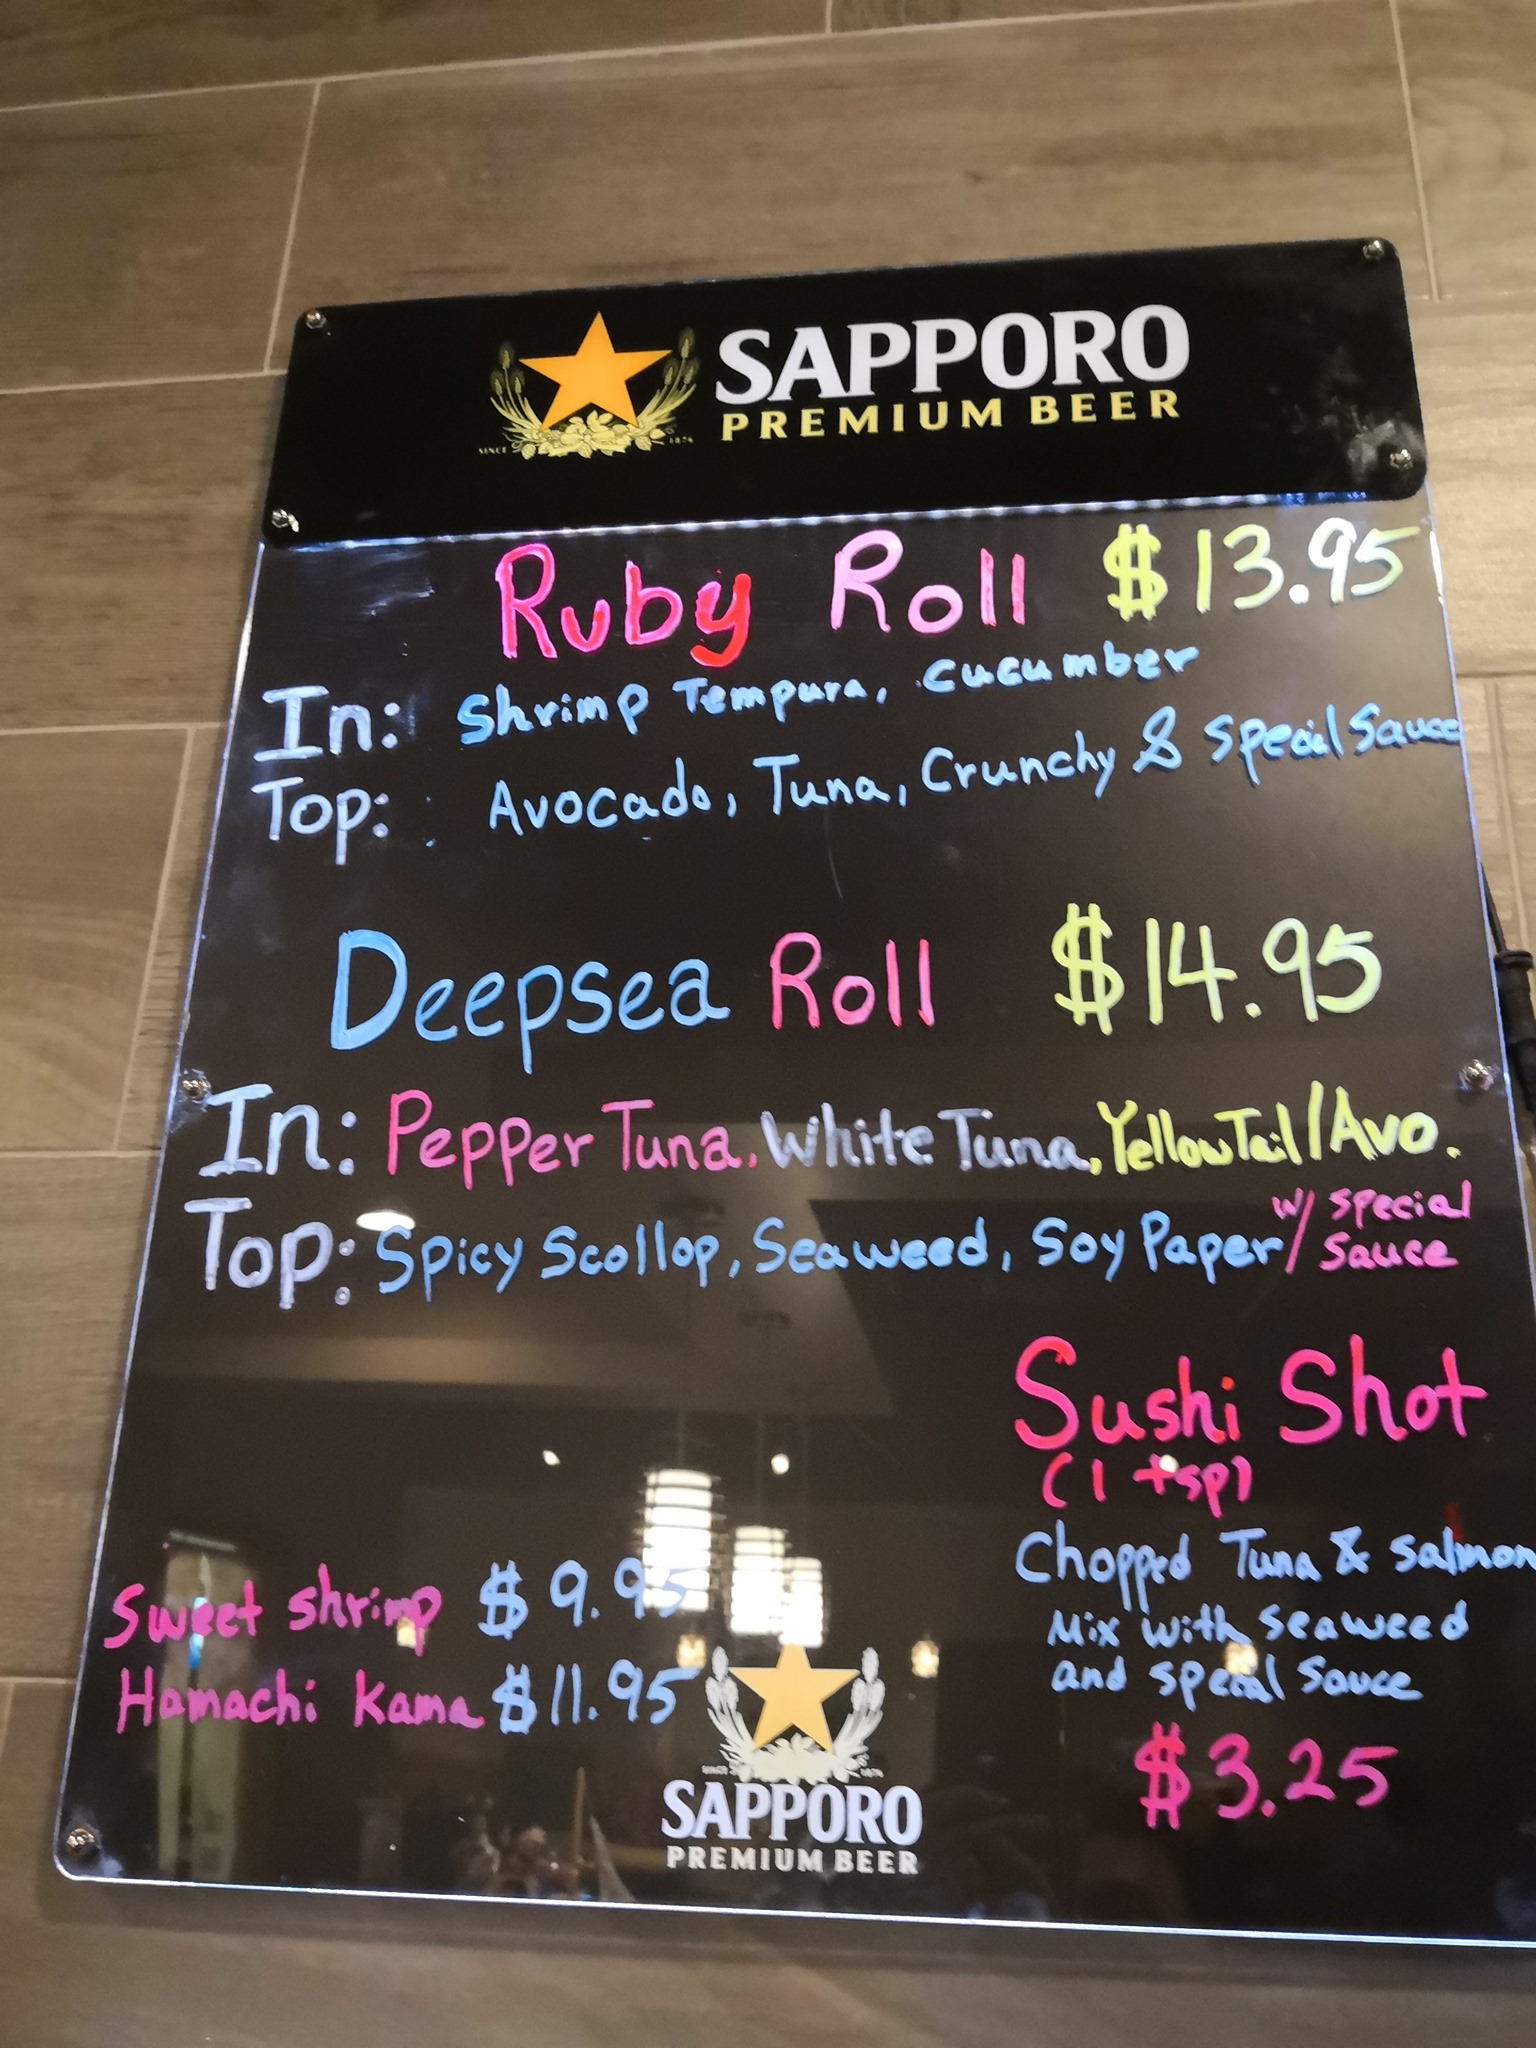 SAPPORO
PREMIUM BEER
SINCE 1876
Ruby Roll $13.95
In: Shrimp Tempura, Cucumber
Top: Avocado, Tuna, Crunchy & Special Sauce
Deepsea Roll $14.95
In: Pepper Tuna, White Tuna, Yellow Tail/Avo.
Top: Spicy Scollop, Seaweed, Soy Paper w/ special
Sauce
Sushi Shot
(1 tsp)
Chopped Tuna & Salmon
Mix with Seaweed
and special Souce
$3.25
Sweet shrimp $9.95
Hamachi Kama $11.95
SINCE 1876
SAPPORO
PREMIUM BEER